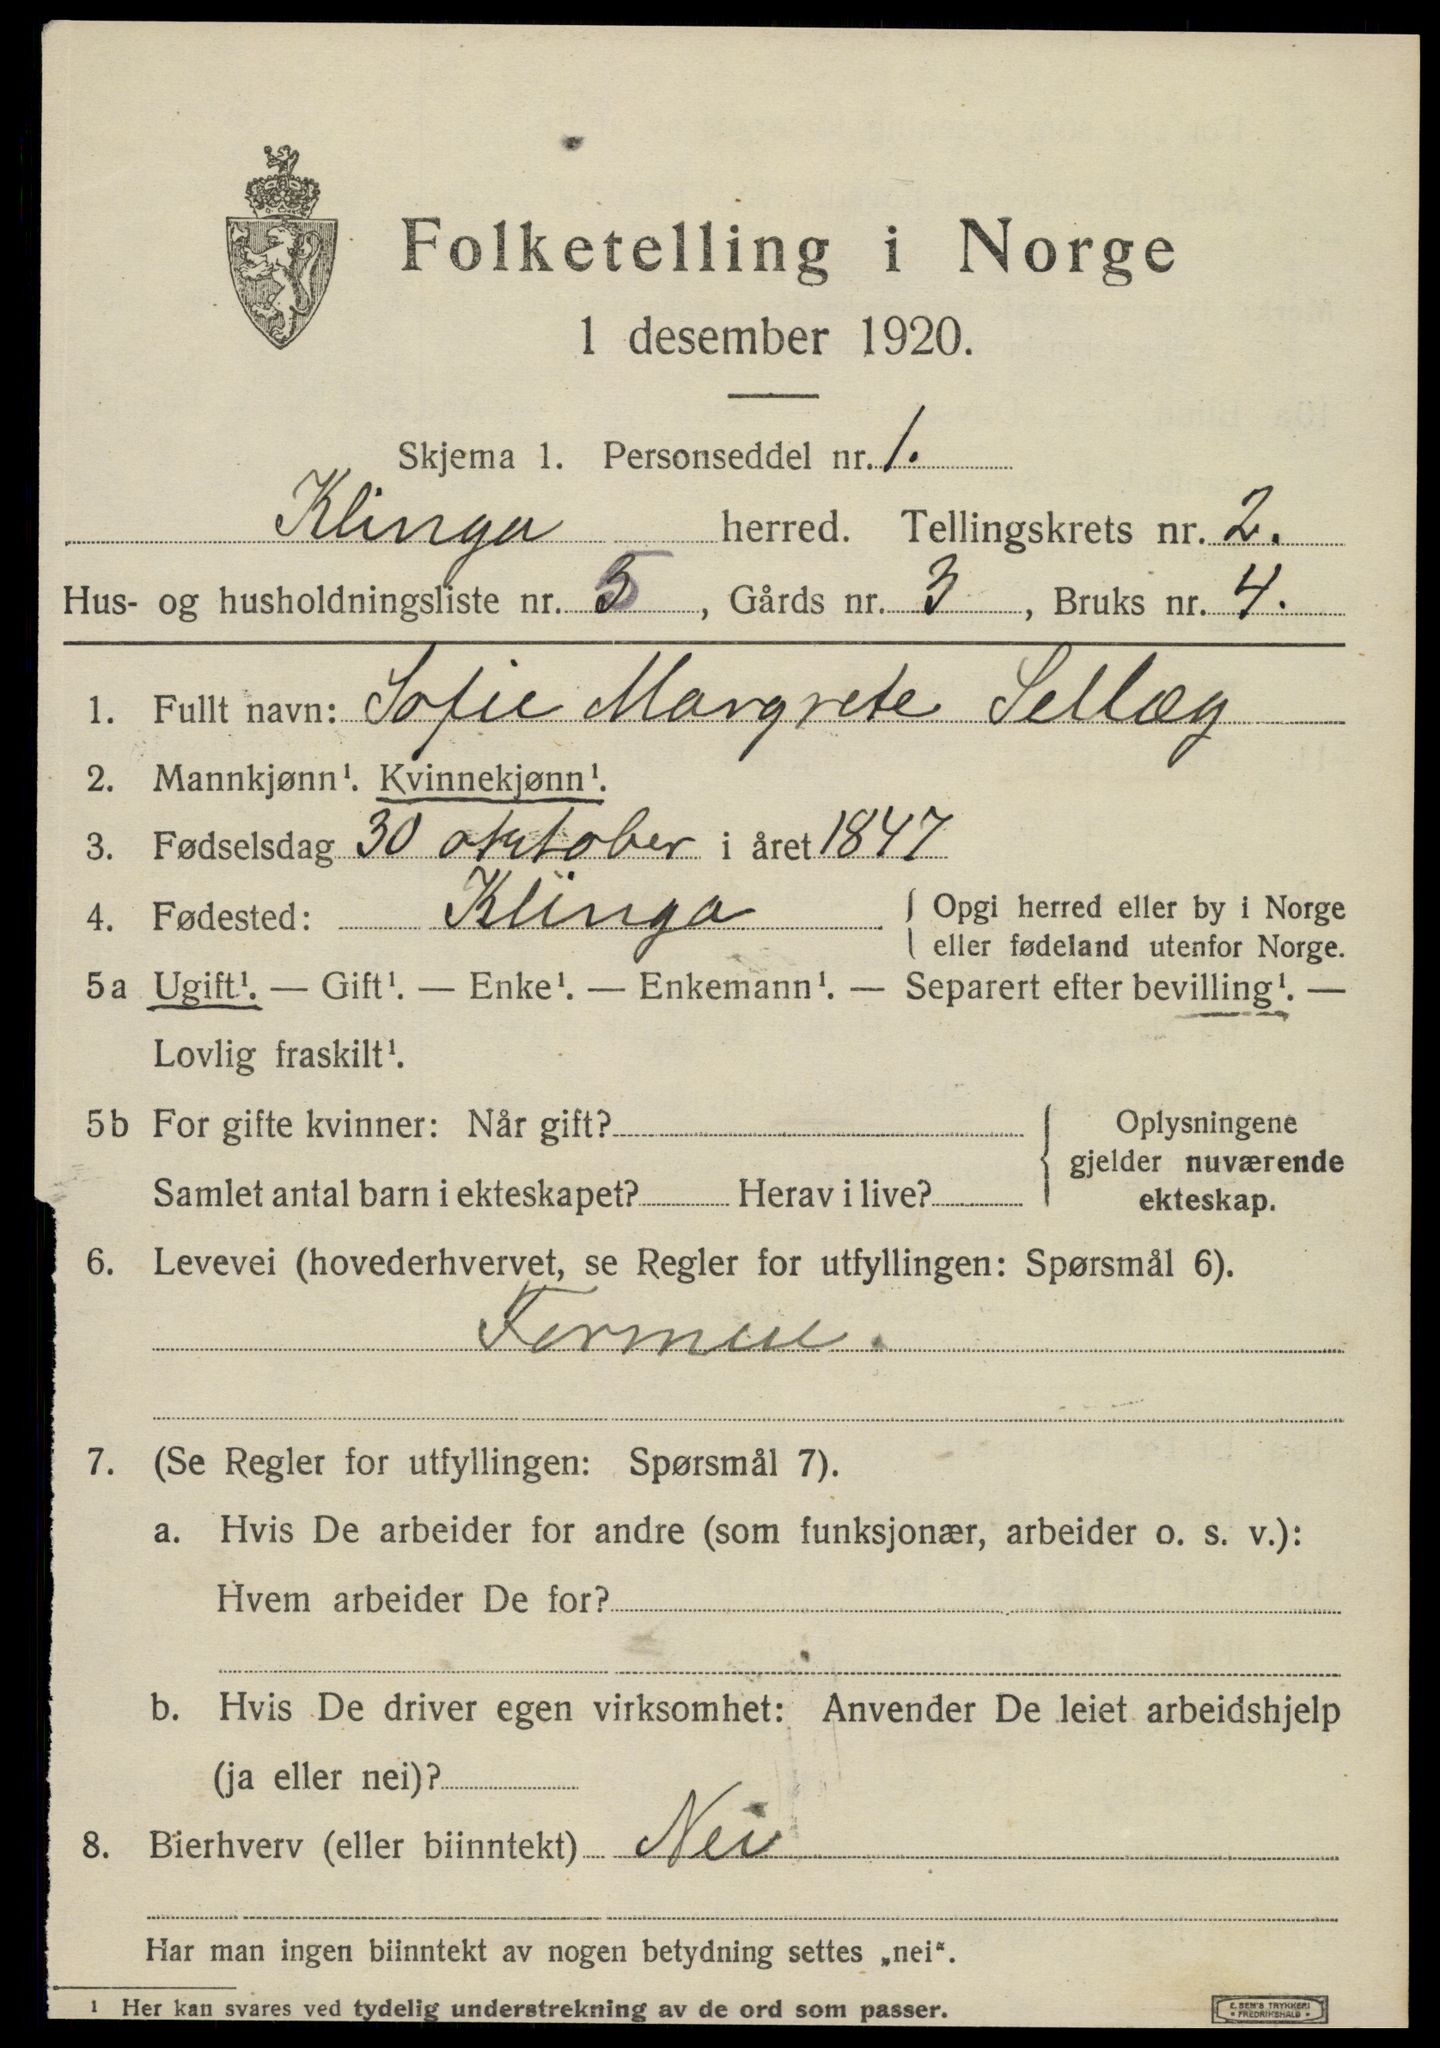 Folketelling i Norge
1 desember 1920.
Skjema 1. Personseddel nr. 1.
Klinga herred. Tellingskrets nr. 2.
Hus- og husholdningsliste nr. 5, Gårds nr. 3, Bruks nr. 4.
1. Fullt navn: Sofie Margrete Sellæg
2. Mannkjønn¹. Kvinnekjønn¹.
3. Fødselsdag 30 oktober i året 1847
4. Fødested: Klinga { Opgi herred eller by i Norge
eller fødeland utenfor Norge.
5a Ugift¹. — Gift¹. — Enke¹. — Enkemann¹. — Separert efter bevilling¹. —
Lovlig fraskilt¹.
5b For gifte kvinner: Når gift?
Samlet antal barn i ekteskapet? Herav i live?
{ Oplysningene
gjelder nuværende
ekteskap.
6. Levevei (hovederhvervet, se Regler for utfyllingen: Spørsmål 6).
Formue.
7. (Se Regler for utfyllingen: Spørsmål 7).
a. Hvis De arbeider for andre (som funksjonær, arbeider o. s. v.):
Hvem arbeider De for?
b. Hvis De driver egen virksomhet: Anvender De leiet arbeidshjelp
(ja eller nei)?
8. Bierhverv (eller biinntekt) Nei
Har man ingen biinntekt av nogen betydning settes „nei“.
¹ Her kan svares ved tydelig understrekning av de ord som passer.
E. SEM'S TRYKKERI
• FREDRIKSHALD •